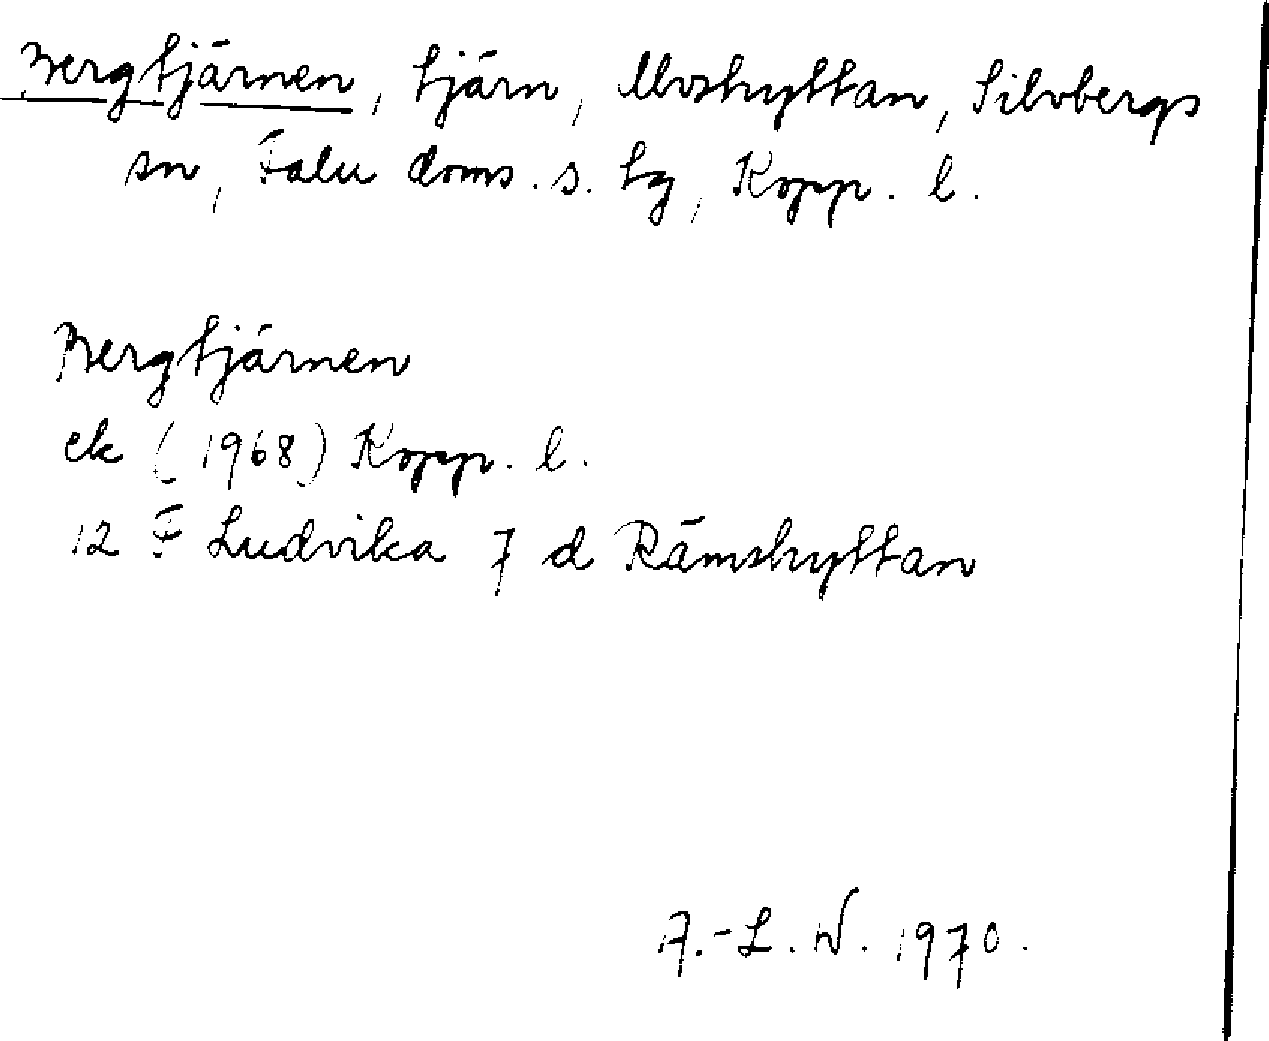 Bergtjärnen, tjärn, Ulvshyttan, Silvbergs
sn, Falu doms. s. tg, Kopp. l.
Bergtjärnen
ek (1968) Kopp. l.
12 F Ludvika 7 d Rämshyttan
A.-L. W. 1970.